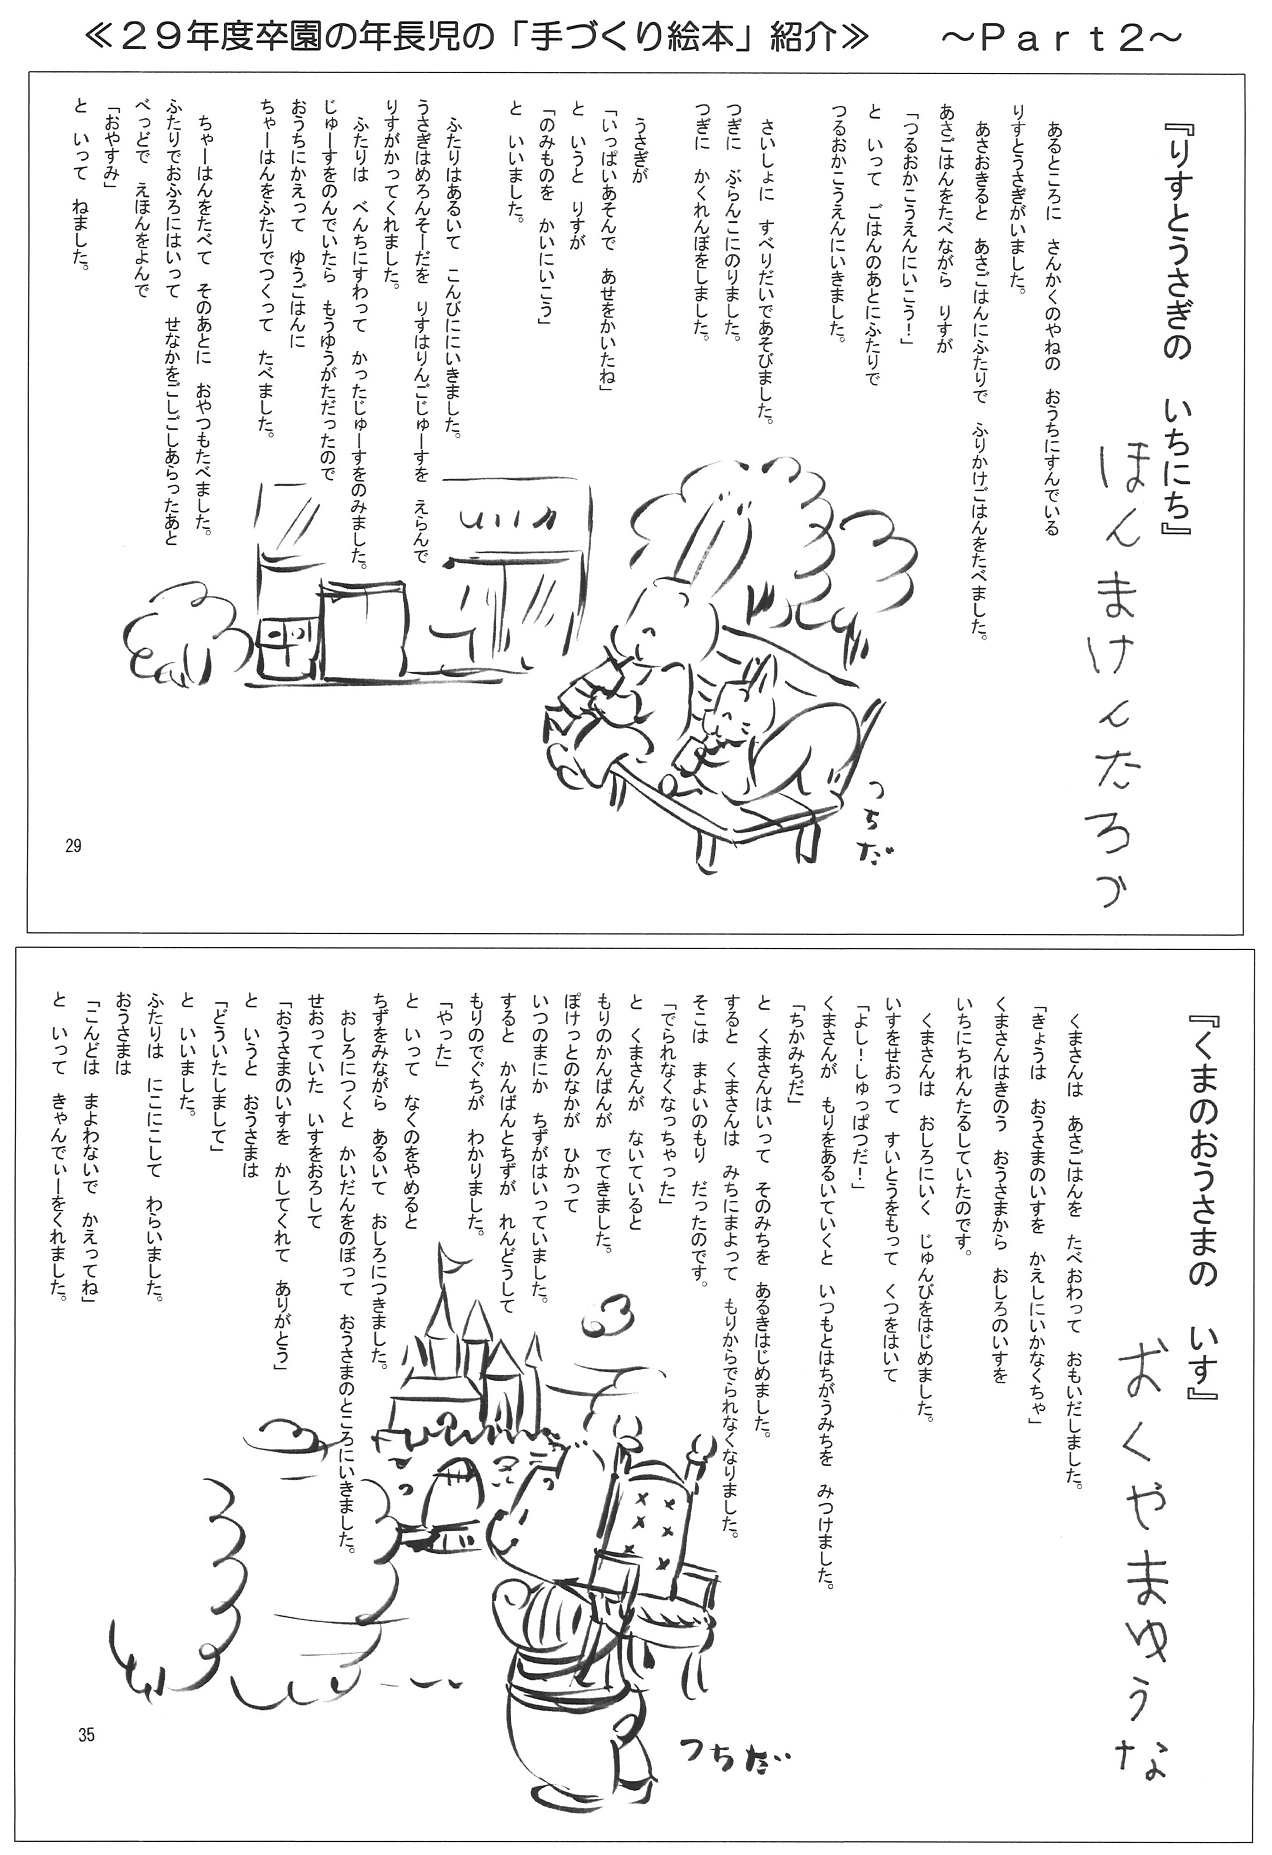 ≪２９年度卒園の年長児の「手づくり絵本」紹介≫　～Ｐａｒｔ２～
『りすとうさぎの　いちにち』
ほんまけんたろう
あるところに　さんかくのやねの　おうちにすんでいる
りすとうさぎがいました。
あさおきると　あさごはんにふたりで　ふりかけごはんをたべました。
あさごはんをたべながら　りすが
「つるおかこうえんにいこう！」
と　いって　ごはんのあとにふたりで
つるおかこうえんにいきました。
さいしょに　すべりだいであそびました。
つぎに　ぶらんこにのりました。
つぎに　かくれんぼをしました。
うさぎが
「いっぱいあそんで　あせをかいたね」
と　いうと　りすが
「のみものを　かいにいこう」
と　いいました。
ふたりはあるいて　こんびににいきました。
うさぎはめろんそーだを　りすはりんごじゅーすを　えらんで
りすがかってくれました。
ふたりは　べんちにすわって　かったじゅーすをのみました。
じゅーすをのんでいたら　もうゆうがただったので
おうちにかえって　ゆうごはんに
ちゃーはんをふたりでつくって　たべました。
ちゃーはんをたべて　そのあとに　おやつもたべました。
ふたりでおふろにはいって　せなかをごしごしあらったあと
べっどで　えほんをよんで
「おやすみ」
と　いって　ねました。
つちだ
29
『くまのおうさまの　いす』
おくやまゆうな
くまさんは　あさごはんを　たべおわって　おもいだしました。
「きょうは　おうさまのいすを　かえしにいかなくちゃ」
くまさんはきのう　おうさまから　おしろのいすを
いちにちれんたるしていたのです。
くまさんは　おしろにいく　じゅんびをはじめました。
いすをせおって　すいとうをもって　くつをはいて
「よし！しゅっぱつだ！」
くまさんが　もりをあるいていくと　いつもとはちがうみちを　みつけました。
「ちかみちだ」
と　くまさんはいって　そのみちを　あるきはじめました。
すると　くまさんは　みちにまよって　もりからでられなくなりました。
そこは　まよいのもり　だったのです。
「でられなくなっちゃった」
と　くまさんが　ないていると
もりのかんばんが　でてきました。
ぽけっとのなかが　ひかって
いつのまにか　ちずがはいっていました。
すると　かんばんとちずが　れんどうして
もりのでぐちが　わかりました。
「やった」
と　いって　なくのをやめると
ちずをみながら　あるいて　おしろにつきました。
おしろにつくと　かいだんをのぼって　おうさまのところにいきました。
せおっていた　いすをおろして
「おうさまのいすを　かしてくれて　ありがとう」
と　いうと　おうさまは
「どういたしまして」
と　いいました。
ふたりは　にこにこして　わらいました。
おうさまは
「こんどは　まよわないで　かえってね」
と　いって　きゃんでぃーをくれました。
つちだ
35